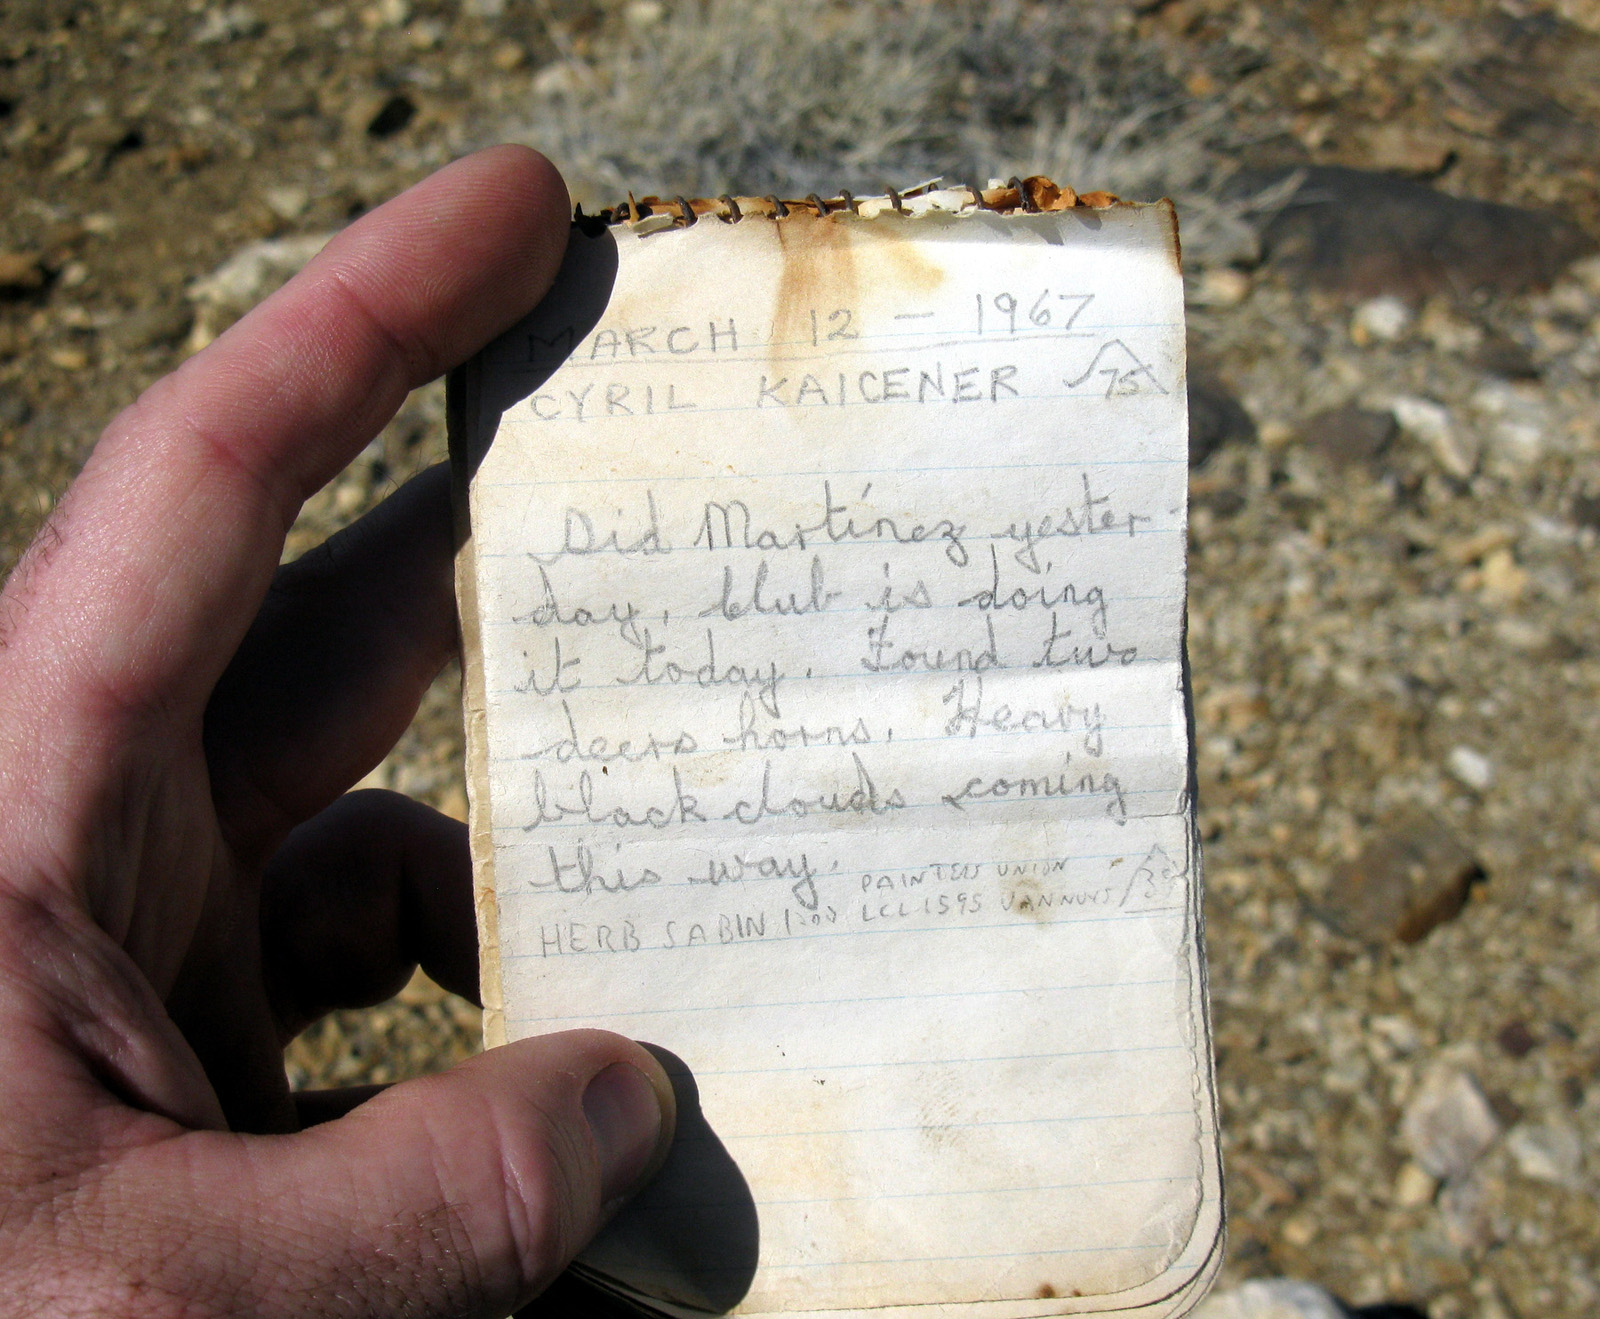 MARCH 12 - 1967
CYRIL KAICENER 75
Did Martínez yester-
day, blub is doing
it today. Found two
deers horns. Heavy
black clouds coming
this way.
PAINTERS UNION
HERB SABIN LCL 1595 VAN NUYS